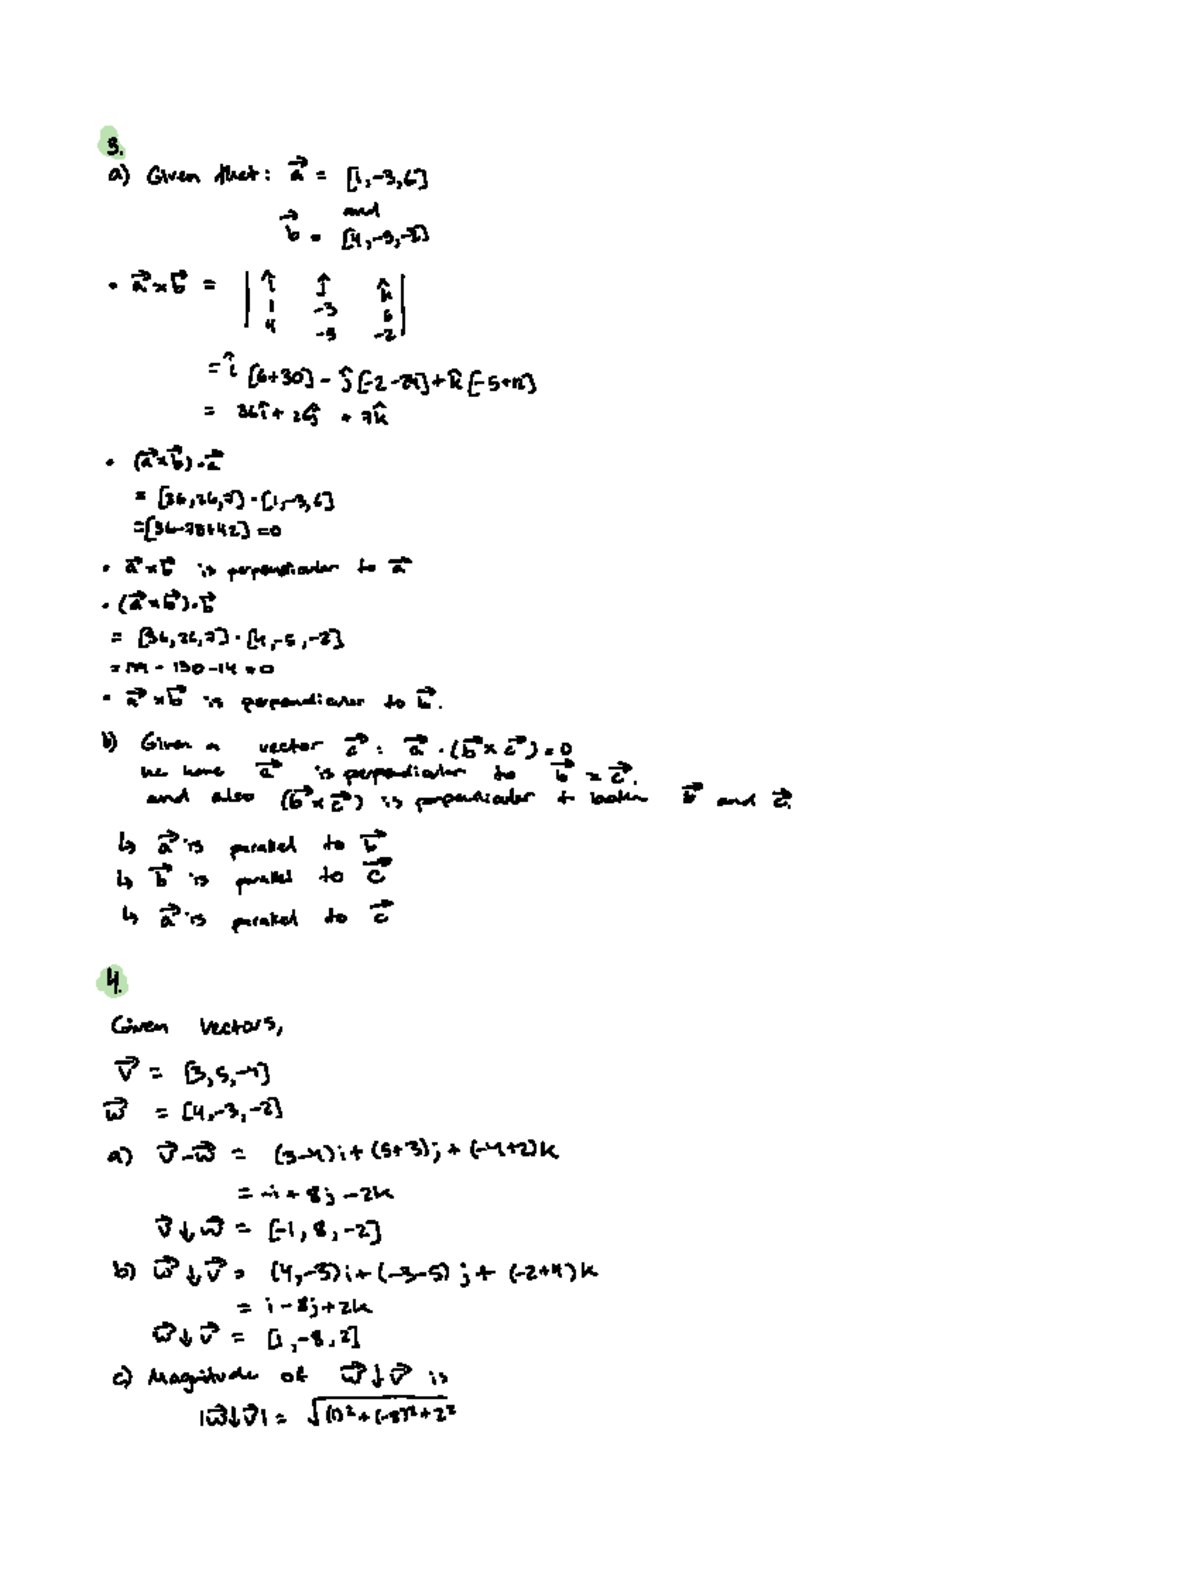 3.
a) Given that: a⃗ = [1,-3,6]
and
b⃗ = [4,-5,-2]
• a⃗×b⃗ = | î ĵ k̂ |
1 -3 6
4 -5 -2
= î [6+30] - ĵ [-2-24] + k̂ [-5+12]
= 36î + 26ĵ + 7k̂
• (a⃗×b⃗)·a⃗
= [36,26,7]·[1,-3,6]
=[36-78+42] =0
• a⃗×b⃗ is perpendicular to a⃗
• (a⃗×b⃗)·b⃗
= [36,26,7]·[4,-5,-2]
=144 - 130-14 =0
• a⃗×b⃗ is perpendicular to b⃗.
b) Given a vector c⃗ : a⃗·(b⃗×c⃗) = 0
we have a⃗ is perpendicular to b⃗ × c⃗.
and also (b⃗×c⃗) is perpendicular to b⃗ and c⃗.
↳ a⃗ is parallel to b⃗
↳ b⃗ is parallel to c⃗
↳ a⃗ is parallel to c⃗
4.
Given vectors,
v⃗ = [3,5,-4]
w⃗ = [4,-3,-2]
a) v⃗-w⃗ = (3-4)i+(5+3)j+(-4+2)k
= -i+8j-2k
v⃗↓w⃗ = [-1,8,-2]
b) w⃗↓v⃗ = (4,-3)i+(-3-5)j+(-2+4)k
= i-8j+2k
w⃗↓v⃗ = [1,-8,2]
c) Magnitude of w⃗↓v⃗ is
|w⃗↓v⃗| = √(1)²+(-8)²+2²